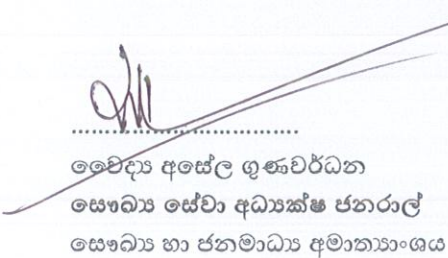 වෛද්‍ය අසේල ගුණවර්ධන
සෞඛ්‍ය සේවා අධ්‍යක්ෂ ජනරාල්
සෞඛ්‍ය හා ජනමාධ්‍ය අමාත්‍යාංශය